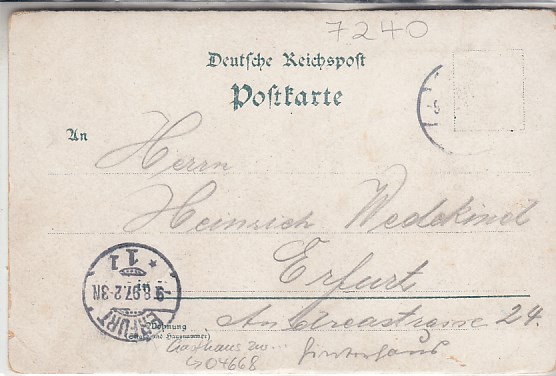 7240
Deutsche Reichspost
Postkarte
An
Herrn
Heinrich Wedekind
Erfurt
Andreastrasse 24.
Hinterhaus
Wohnung
(Straße und Hausnummer)
ERFURT
9 8.97.2-3N
* 1 1
04668